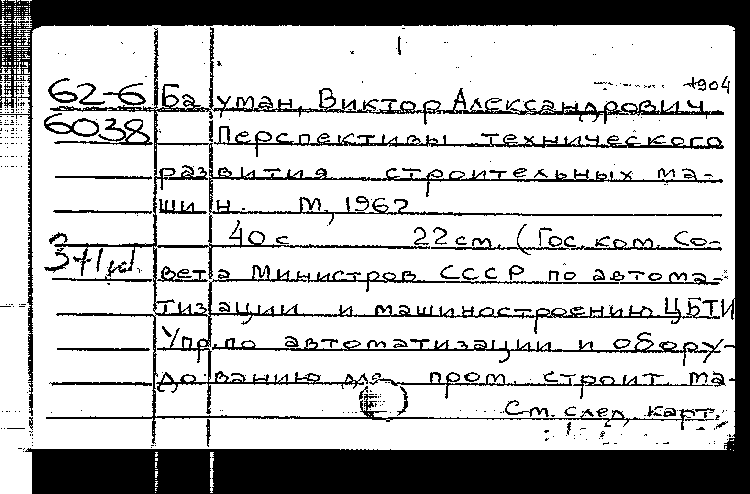 1
1904
62-6 Бауман, Виктор Александрович
6038 Перспективы технического
развития строительных ма-
шин. М, 1962
40 с 22 см. (Гос. ком. Со-
3+1
вета Министров СССР по автома-
тизации и машиностроению. ЦБТИ
Упр. по автоматизации и обору-
дованию для пром. строит. ма-
См. след. карт.